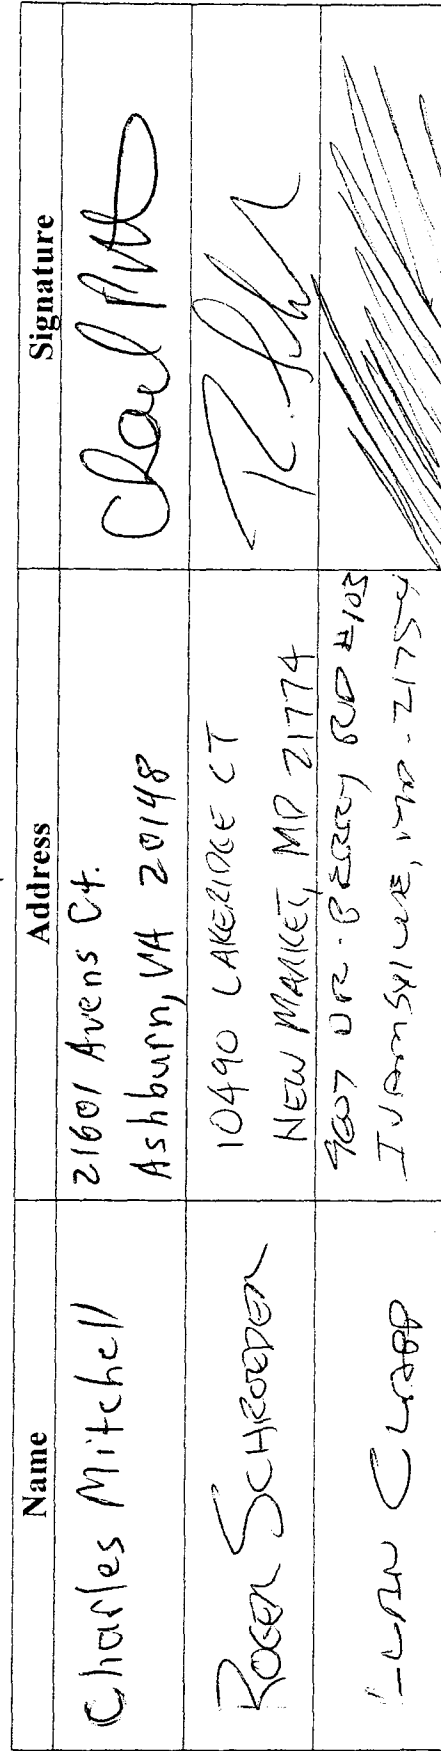 Name Address Signature
Charles Mitchell
21601 Avens Ct.
Ashburn, VA 20148
ROGER SCHROEDER
10490 LAKERIDGE CT
NEW MARKET, MD 21774
CLAPP
DR. BERRY RD #103
IJAMSVILLE, MD - 21754